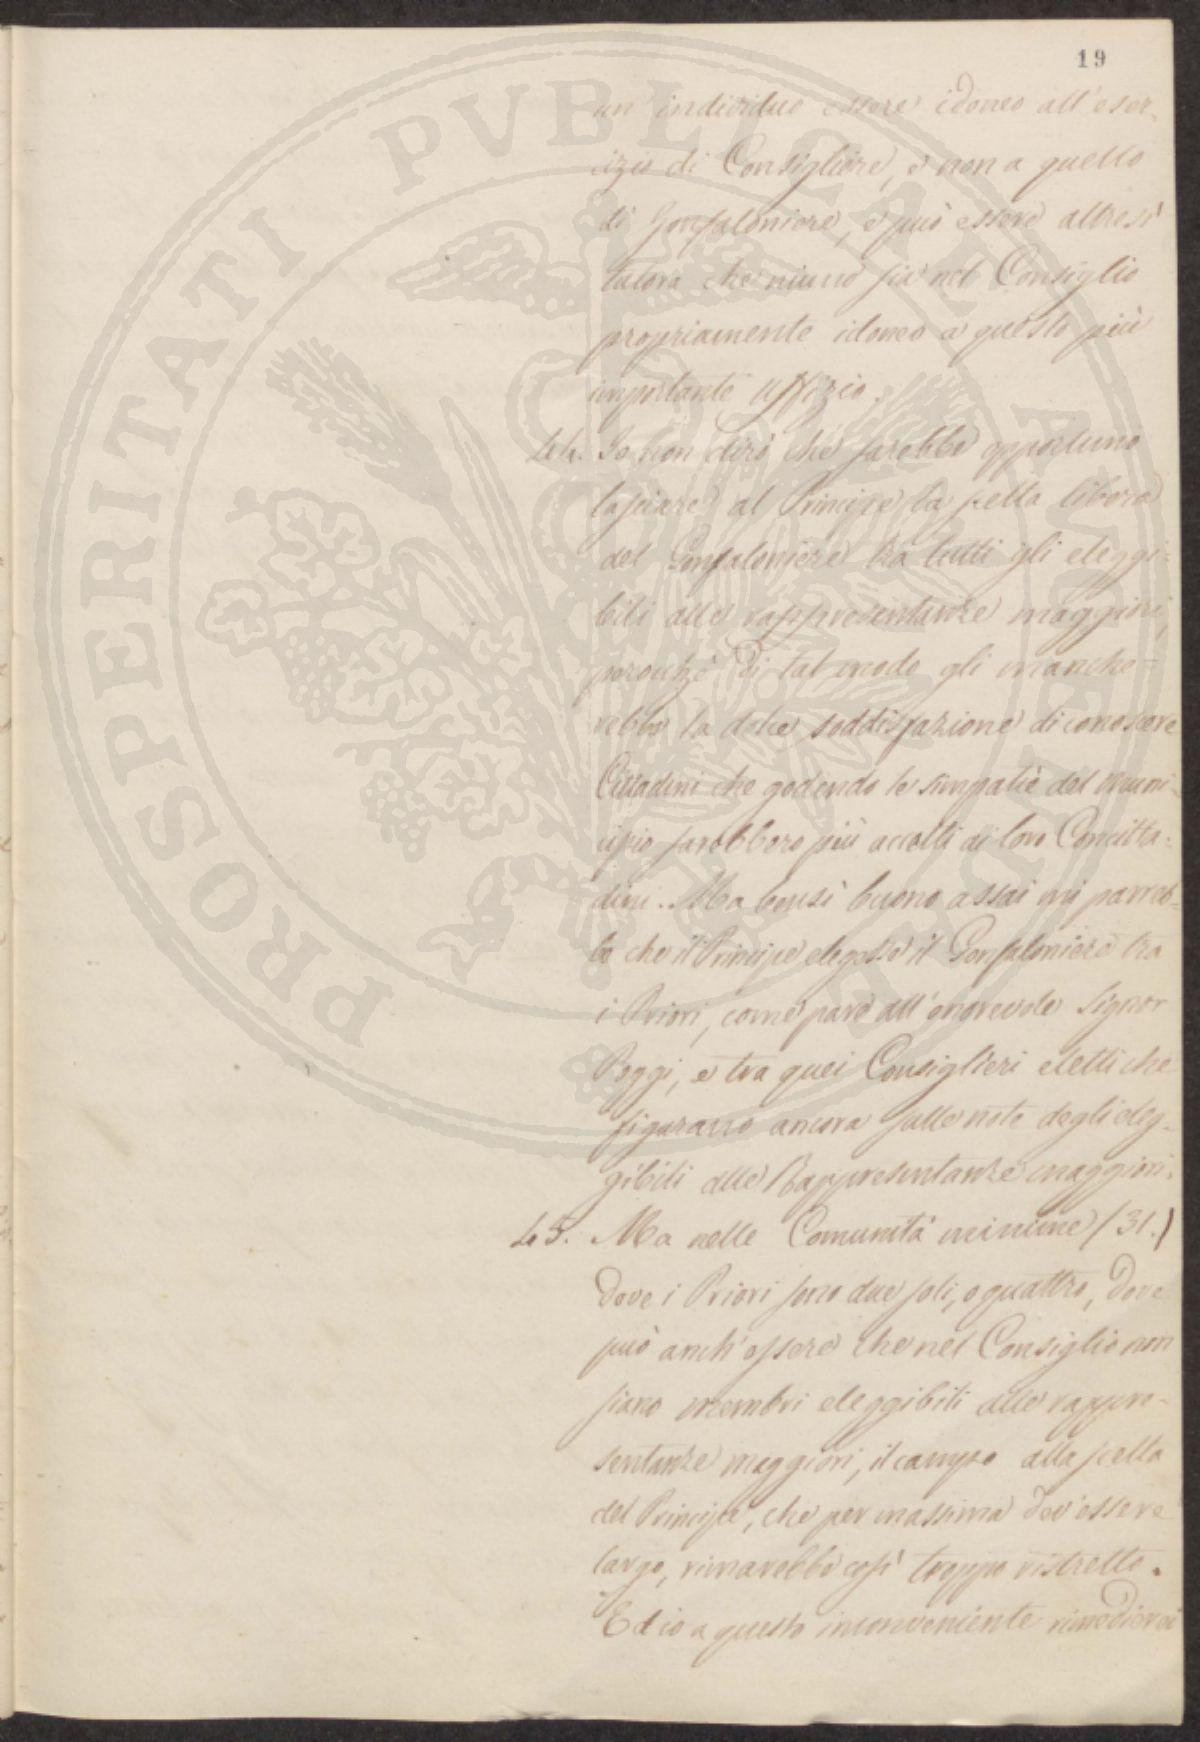 19
PROSPERITATI PVBLICAE AVGENDAE
un' individuo essere idoneo all'eser-
cizio di Consigliere, e non a quello
di Gonfaloniere, e può essere altresì
talora che niuno sia nel Consiglio
propriamente idoneo a questo più
importante Uffizio.
44. Io non dirò che sarebbe opportuno
lasciare al Principe la scelta libera
del Gonfaloniere tra tutti gli eleggi-
bili alle rappresentanze maggiori,
perouhè di tal modo gli manche-
rebbe la dolce soddisfazione di conoscere
Cittadini che godendo le simpatie del Muni-
cipio sarebbero più accetti ai loro Concitta-
dini. Ma bensì buono assai mi parreb-
be che il Principe elegesse il Gonfaloniere tra
i Priori, come pare all'onorevole Signor
Poggi, e tra quei Consiglieri eletti che
figurano ancora sulle note degli eleg-
gibili alle Rappresentanze maggiori.
45. Ma nelle Comunità minime (31.)
dove i Priori sono due soli, o quattro, dove
può anch'essere che nel Consiglio non
siano membri eleggibili alle rappre-
sentanze maggiori, il campo alla scelta
del Principe, che per massima dev'essere
largo, rimarebbe così troppo ristretto.
Ed io a questo inconveniente rimedierei